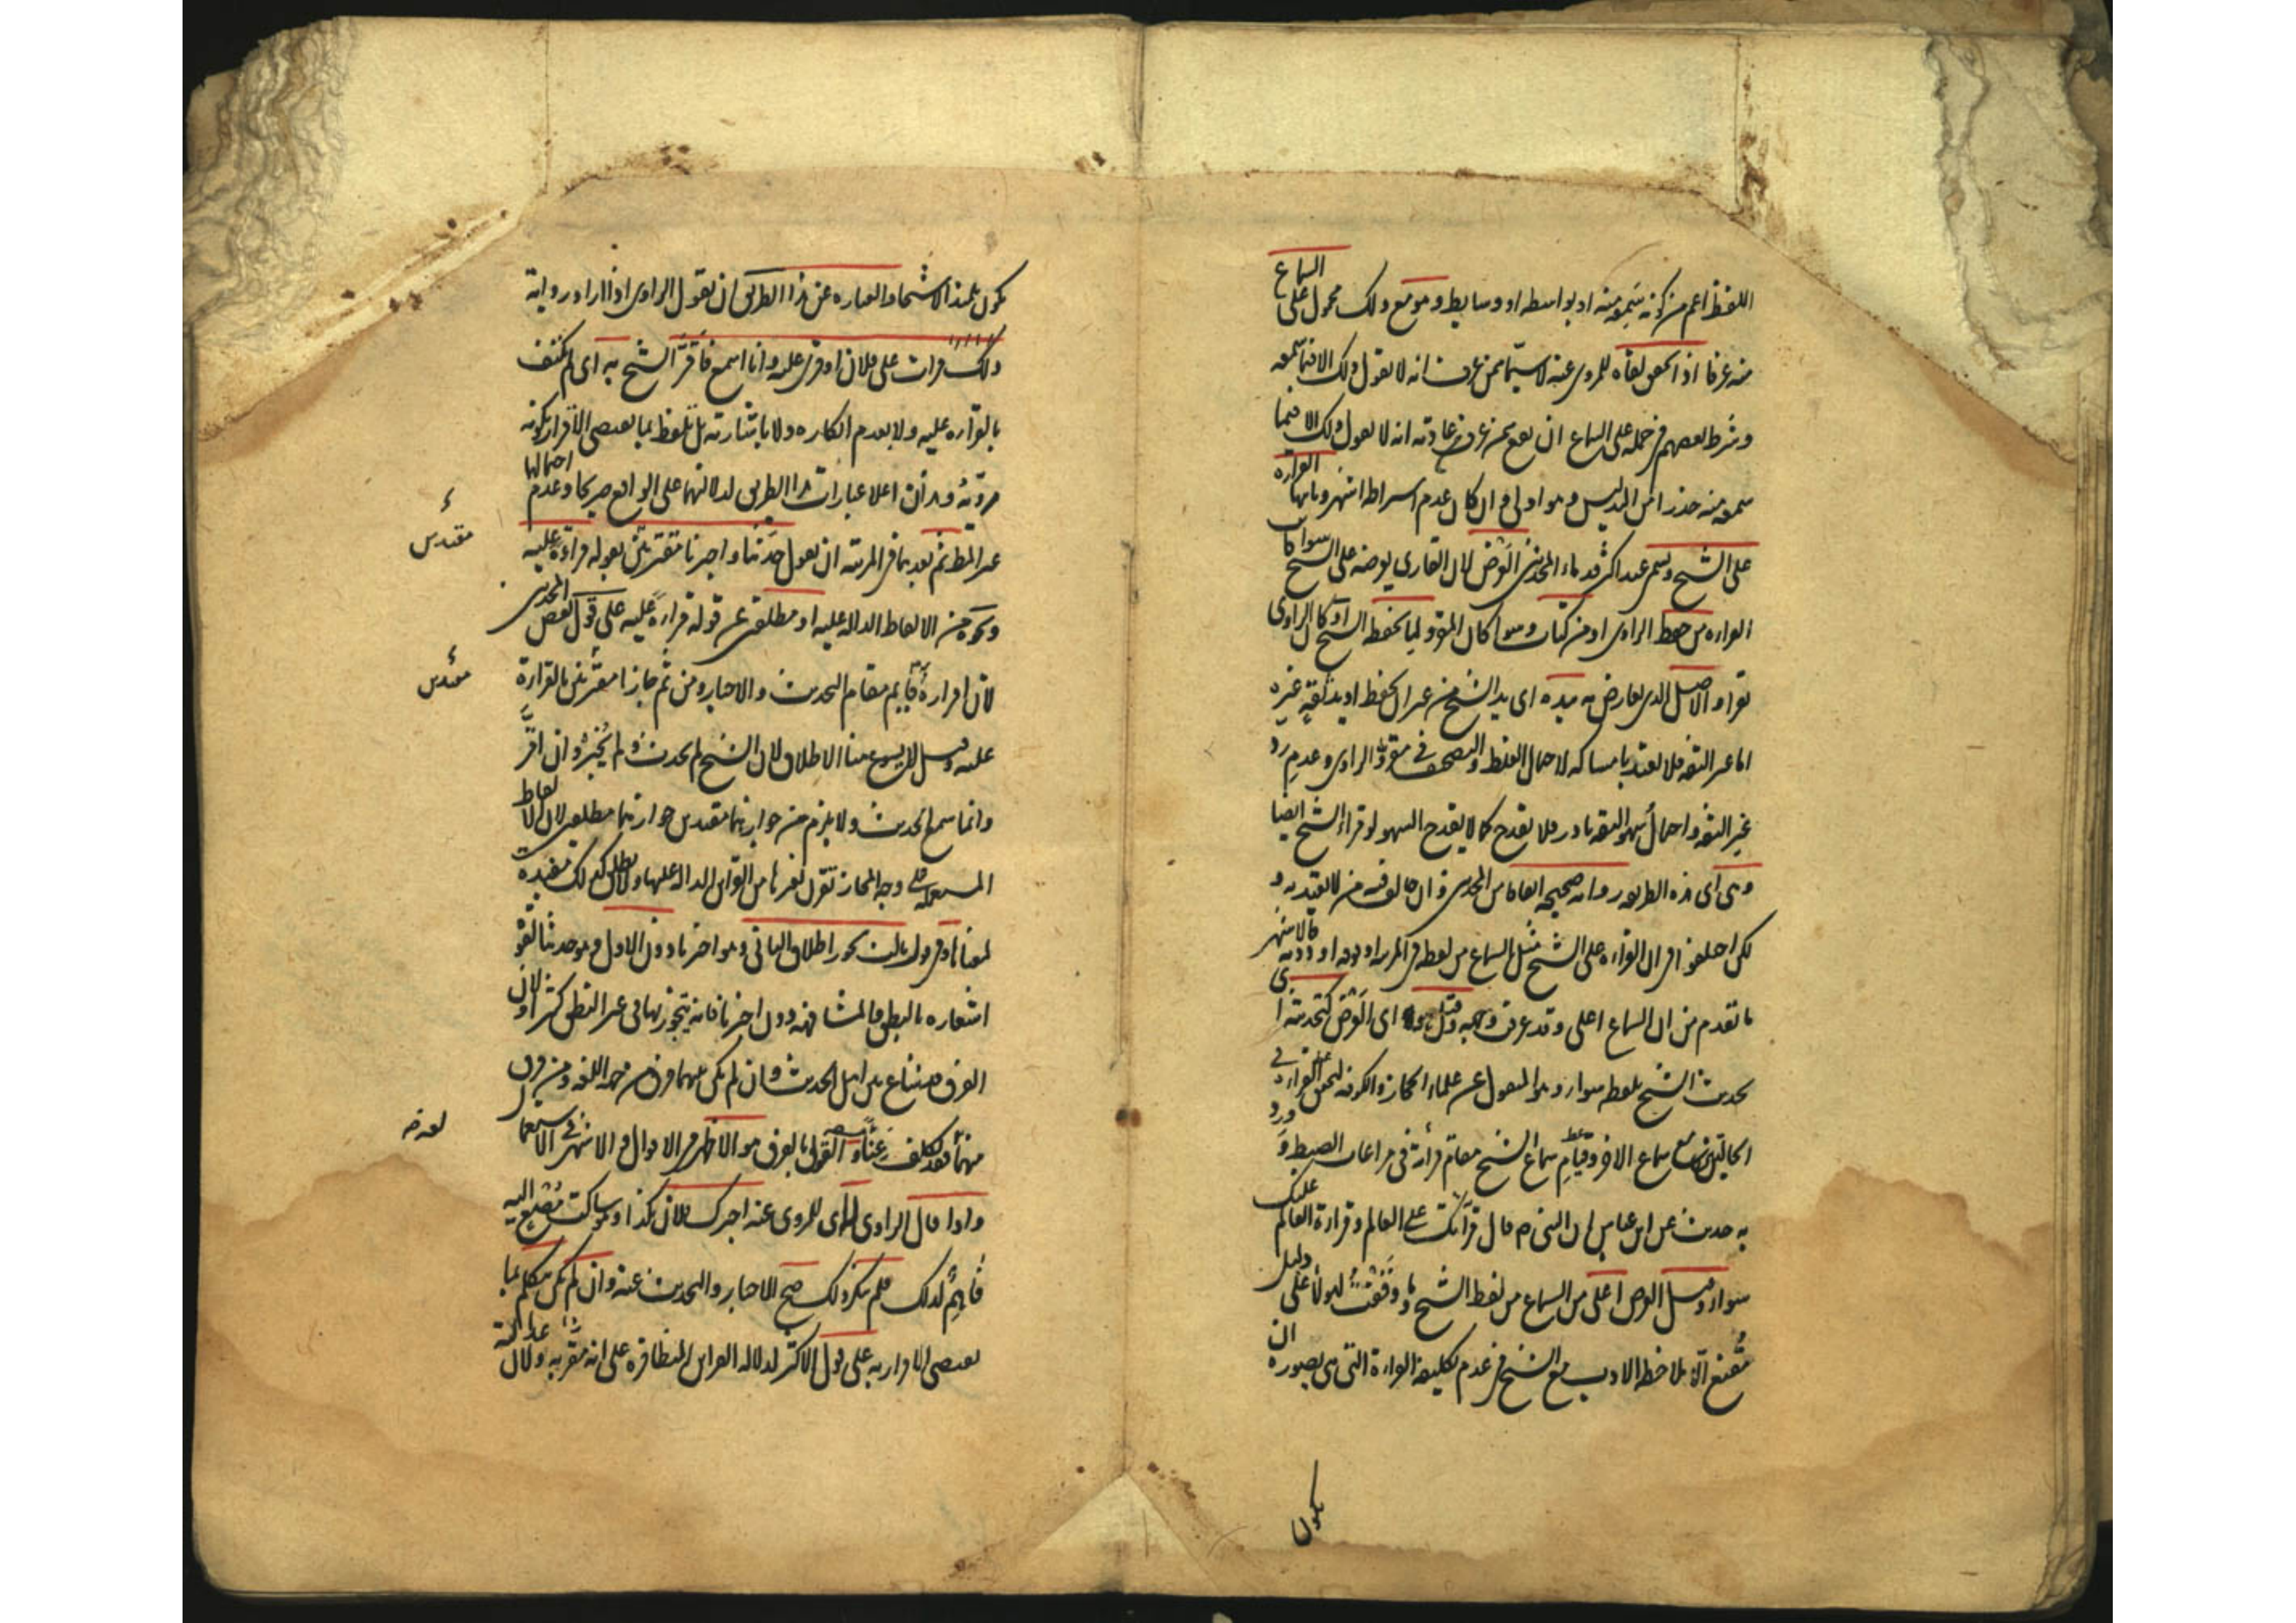 اللفظ اعم من كونه سمعه منه او بواسطه او وسايط وهو مع ذلك محمول على السماع
منه عرفا اذا تحقق لقاه للمروى عنه لا سيما ممن عرف انه لا يقول ذلك الا فيما سمعه
وشرط بعضهم فى حمله على السماع ان يقع ممن عرف من عادته انه لا يقول ذلك الا فيما
سمعه منه حذرا من التدليس وهو اولى وان كان عدم اشتراطه اشهر وثانيها القراءة
على الشيخ وتسمى عند اكثر قدماء المحدثين العرض لان القارى يعرضه على الشيخ سواء كانت
القراءة من حفظ الراوى او من كتاب وسواء كان المقرو لما يحفظه الشيخ او كان الراوى
يقرا والاصل الذى يعارض به بيده اى يد الشيخ من غير ان يحفظ او يد ثقة غيره
اما غير الثقه فلا يعتد بامساكه لاحتمال الغلط والتصحيف فى مقروّ الراوى وعدم رد
غير الثقه واحتمال سهو الثقه نادر فلا يقدح كما لا يقدح السهو لو قراء الشيخ ايضا
وهى اى هذه الطريقه رواية صحيحه اتفاقا من المحدثين وان خالف فيه من لا يعتد به و
لكن اختلفوا فى ان القراءه على الشيخ مثل السماع من لفظه فى المرتبه او فوقه او دونه فالاشهر
ما تقدم من ان السماع اعلى وقد عرفت وجهه وقيل اى العرض كتحديثه اى
تحديث الشيخ بلفظه سواء وهو المنقول عن علماء الحجاز والكوفه لتحقق القراءة فى
الحالتين مع سماع الاخر وقيام سماع الشيخ مقام قراءته فى مراعات الضبط وورد
به حديث عن ابن عباس ان النبى ص قال قرآئتك على العالم وقراءة العالم عليك
سواء وقيل العرض اعلى من السماع من لفظ الشيخ وما وقفت لهولاء على دليل
مقنع الا ملاحظه الادب مع الشيخ فى عدم تكليفه القراءة التى هى بصورة ان
يكون
يكون تلميذا لا شيخا والعباره عن هذا الطريق ان يقول الراوى اذا اراد رواية
ذلك قرات على فلان او قرى عليه وانا اسمع فاقرّ الشيخ به اى لم يكتف
بالقراءه عليه ولا بعدم انكاره ولا باشارته بل تلفظ بما يقتضى الاقرار بكونه
مرويّه وهذان اعلا عبارات هذا الطريق لدلالتهما على الواقع صريحا وعدم احتمالها
غير المط ثم بعدهما فى المرتبه ان يقول حدثنا واخبرنا مقترنين بقوله قراءة عليه
ونحوه من الالفاظ الداله عليه او مطلقين عن قوله قراءة عليه على قول بعض المحدثين
لان اقراره به قائم مقام التحديث والاخبار ومن ثم جازا مقترنين بالقراءة
عليه وقيل لا يسوغ هنا الاطلاق لان الشيخ لم يحدث ولم يخبر وان اقرّ
وانما سمع الحديث ولا يلزم من جوازهما مقيدين جوازهما مطلقين لان الالفاظ
المستعملة على وجه المجاز تقرن بغيرها من القرائن الداله عليها ولا تطلق كذلك مفيدة
لمعناها وفى قول ثالث يجوز اطلاق الثانى وهو اخبرنا دون الاول وهو حدثنا لقوة
اشعاره بالنطق والمشافهه دون اخبرنا فانه يتجوز بها فى غير النطق كثيرا ولان
الفرق شاع بين اهل الحديث وان لم يكن بينهما فرق من جهه اللغه ومن فرق
بينهما فقد تكلف عناء والقول بالفرق هو الاظهر فى الاقوال والاشهر فى الاستعمال
واذا قال الراوى له اى للمروى عنه اخبرك فلان بكذا وهو ساكت مصغ اليه
فاهم لذلك فلم ينكر ذلك صح الاخبار والتحديث عنه وان لم يكن يتكلم بما
يقتضى الاقرار به على قول الاكثر لدلاله القراين المتظافره على انه مقرّ به ولان عدالته
مقيدين
مقيدين